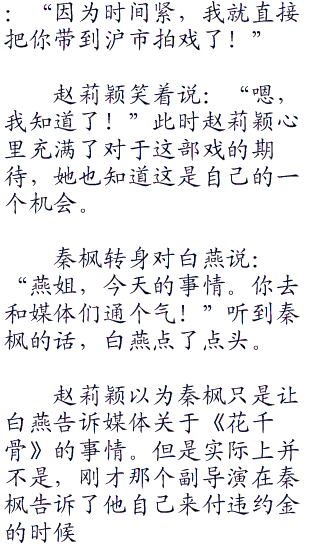 ：“因为时间紧，我就直接
把你带到沪市拍戏了！”
赵莉颖笑着说：“嗯，
我知道了！”此时赵莉颖心
里充满了对于这部戏的期
待，她也知道这是自己的一
个机会。
秦枫转身对白燕说：
“燕姐，今天的事情。你去
和媒体们通个气！”听到秦
枫的话，白燕点了点头。
赵莉颖以为秦枫只是让
白燕告诉媒体关于《花千
骨》的事情。但是实际上并
不是，刚才那个副导演在秦
枫告诉了他自己来付违约金
的时候